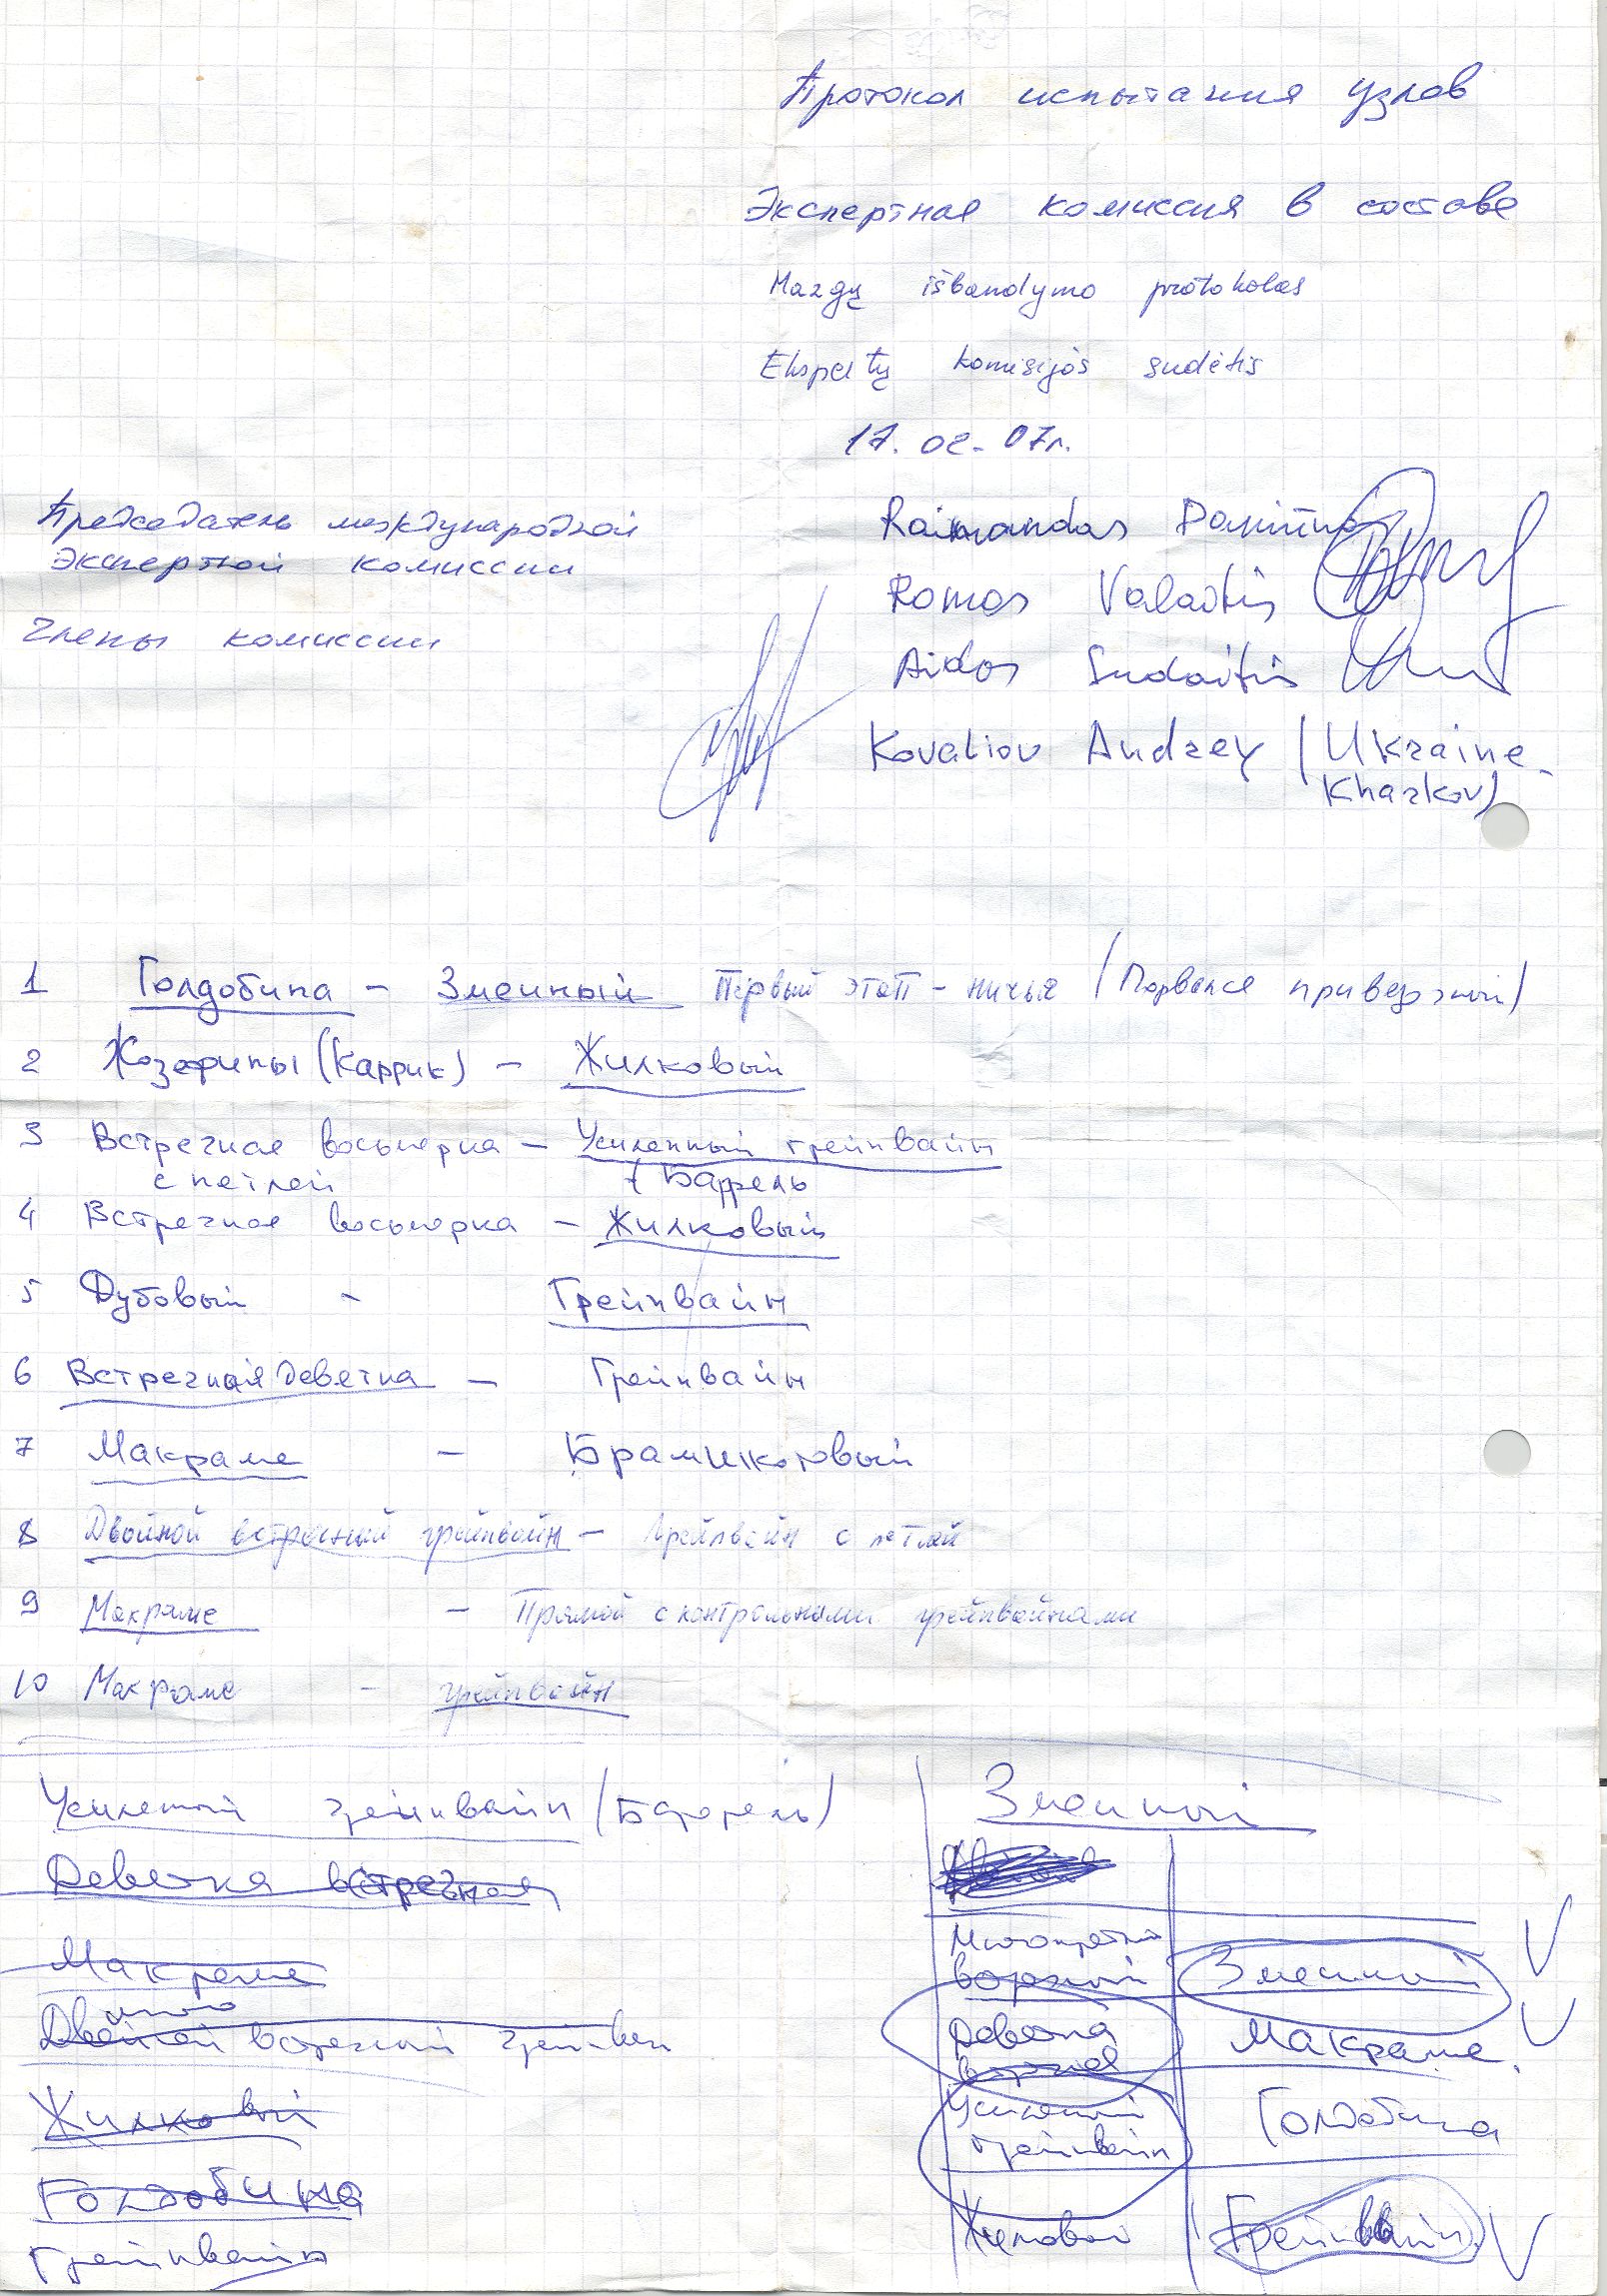 Протокол испытания узлов
Экспертная комиссия в составе
Mazgų išbandymo protokolas
Ekspertų komisijos sudėtis
17. 02. 07г.
Председатель международной
экспертной комиссии
Члены комиссии
Raimondas
Romas Valaitis
Aidas Sudaitis
Kovaliov Andrey (Ukraine-
Kharkov)
1 Голдобина - Змеиный Первый этап - ничья (Порвался привязной)
2 Жозефины (Каррик) - Жилковый
3 Встречная восьмерка - Усиленный грейпвайн
с петлей (Баррель
4 Встречная восьмерка - Жилковый
5 Дубовый - Грейпвайн
6 Встречная девятка - Грейпвайн
7 Макраме - Брамшкотовый
8 Двойной встречный грейпвайн - Грейпвайн с петлей
9 Макраме - Прямой с контрольными грейпвайнами
10 Макраме - грейпвайн
Усиленый грейпвайн (Баррель)
Девятка встречная
Макраме
Двойной встречный
Жилковый
Голдобина
Грейпвайн
Змеиный
Змеиный
Девятка Макраме
Усиленый Голдобина
грейпвайн
Жилковый Грейпвайн